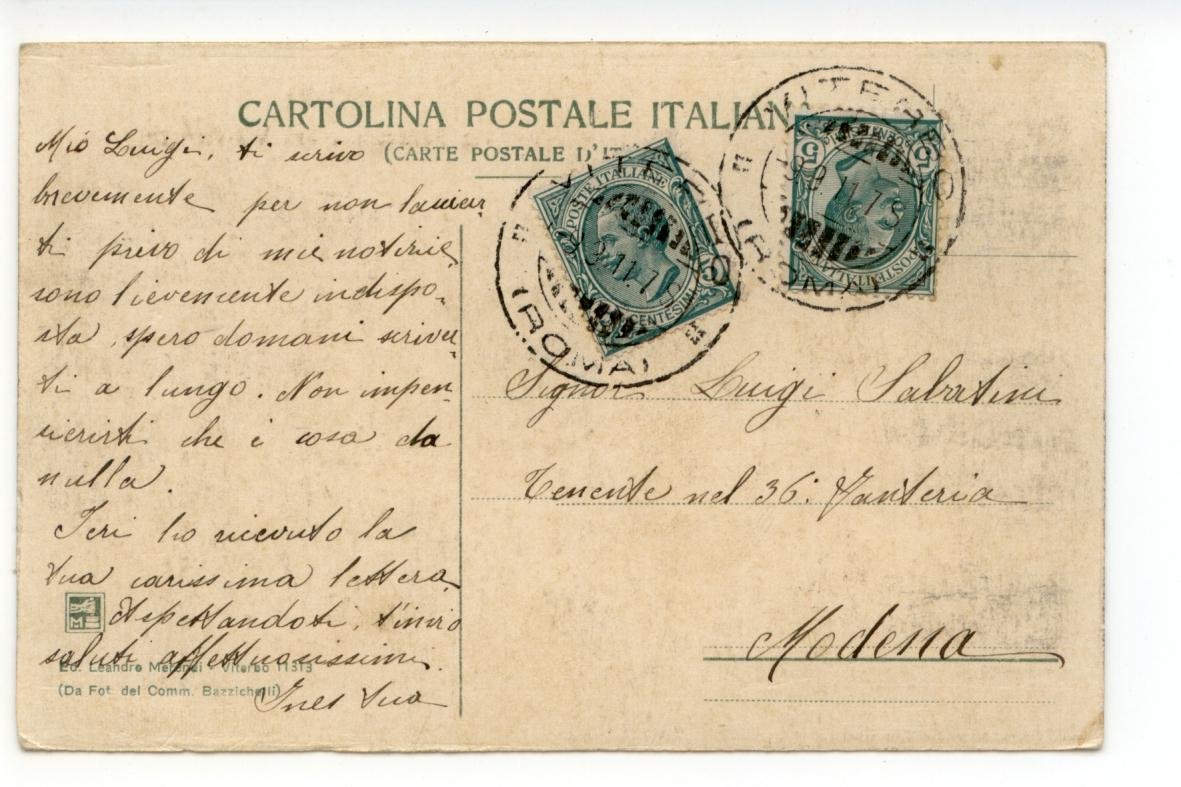 CARTOLINA POSTALE ITALIANA
(CARTE POSTALE D'ITALIE)
Mio Luigi, ti scrivo
brevemente per non lasciar
ti privo di mie notizie,
sono lievemente indispo-
sta, spero domani scriver-
ti a lungo. Non impen-
sierirti che è cosa da
nulla.
Ieri ho ricevuto la
tua carissima lettera
Aspettandoti, t'invio
saluti affettuosissimi.
Ines tua
M
Ed. Leandro Merenzi - Viterbo 11313
(Da Fot. del Comm. Bazzichelli)
POSTE ITALIANE
5 CENTESIMI 5
VITERBO
(ROMA)
POSTE ITALIANE
5 CENTESIMI 5
VITERBO
(ROMA)
Signor Luigi Sabatini
Tenente nel 36.° Fanteria
Modena